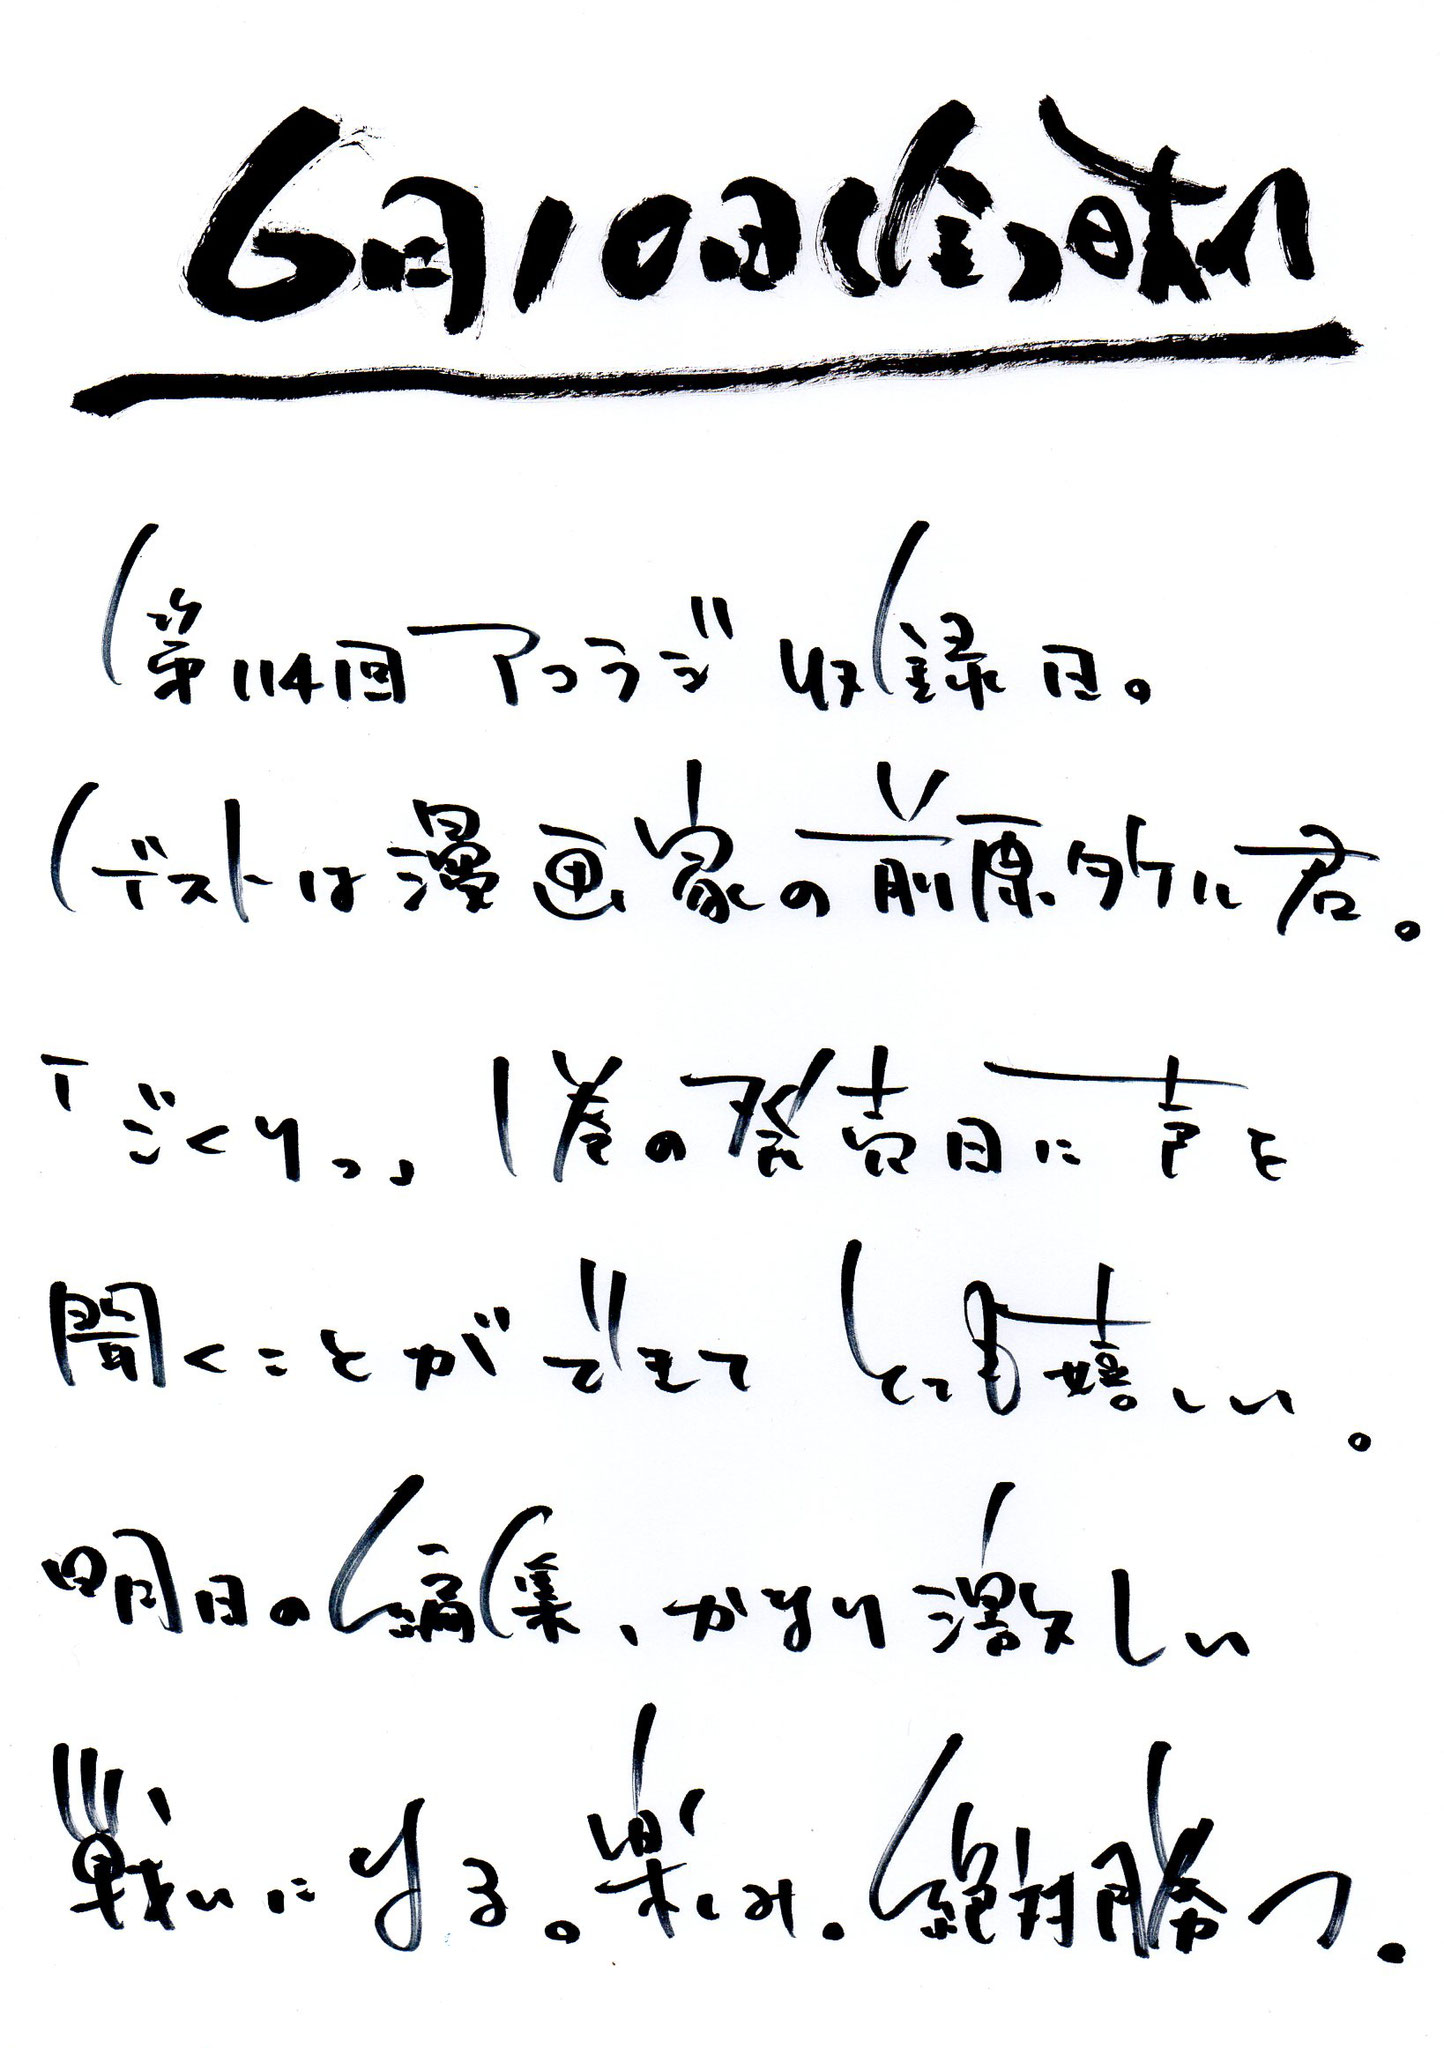 6月10日(金)晴れ
第114回アコラジ収録日。
ゲストは漫画家の前原タケル君。
「ごくりっ」1巻の発売日に声を
聞くことができてとても嬉しい。
明日の編集、かなり激しい
戦いになる。楽しみ。絶対勝つ。